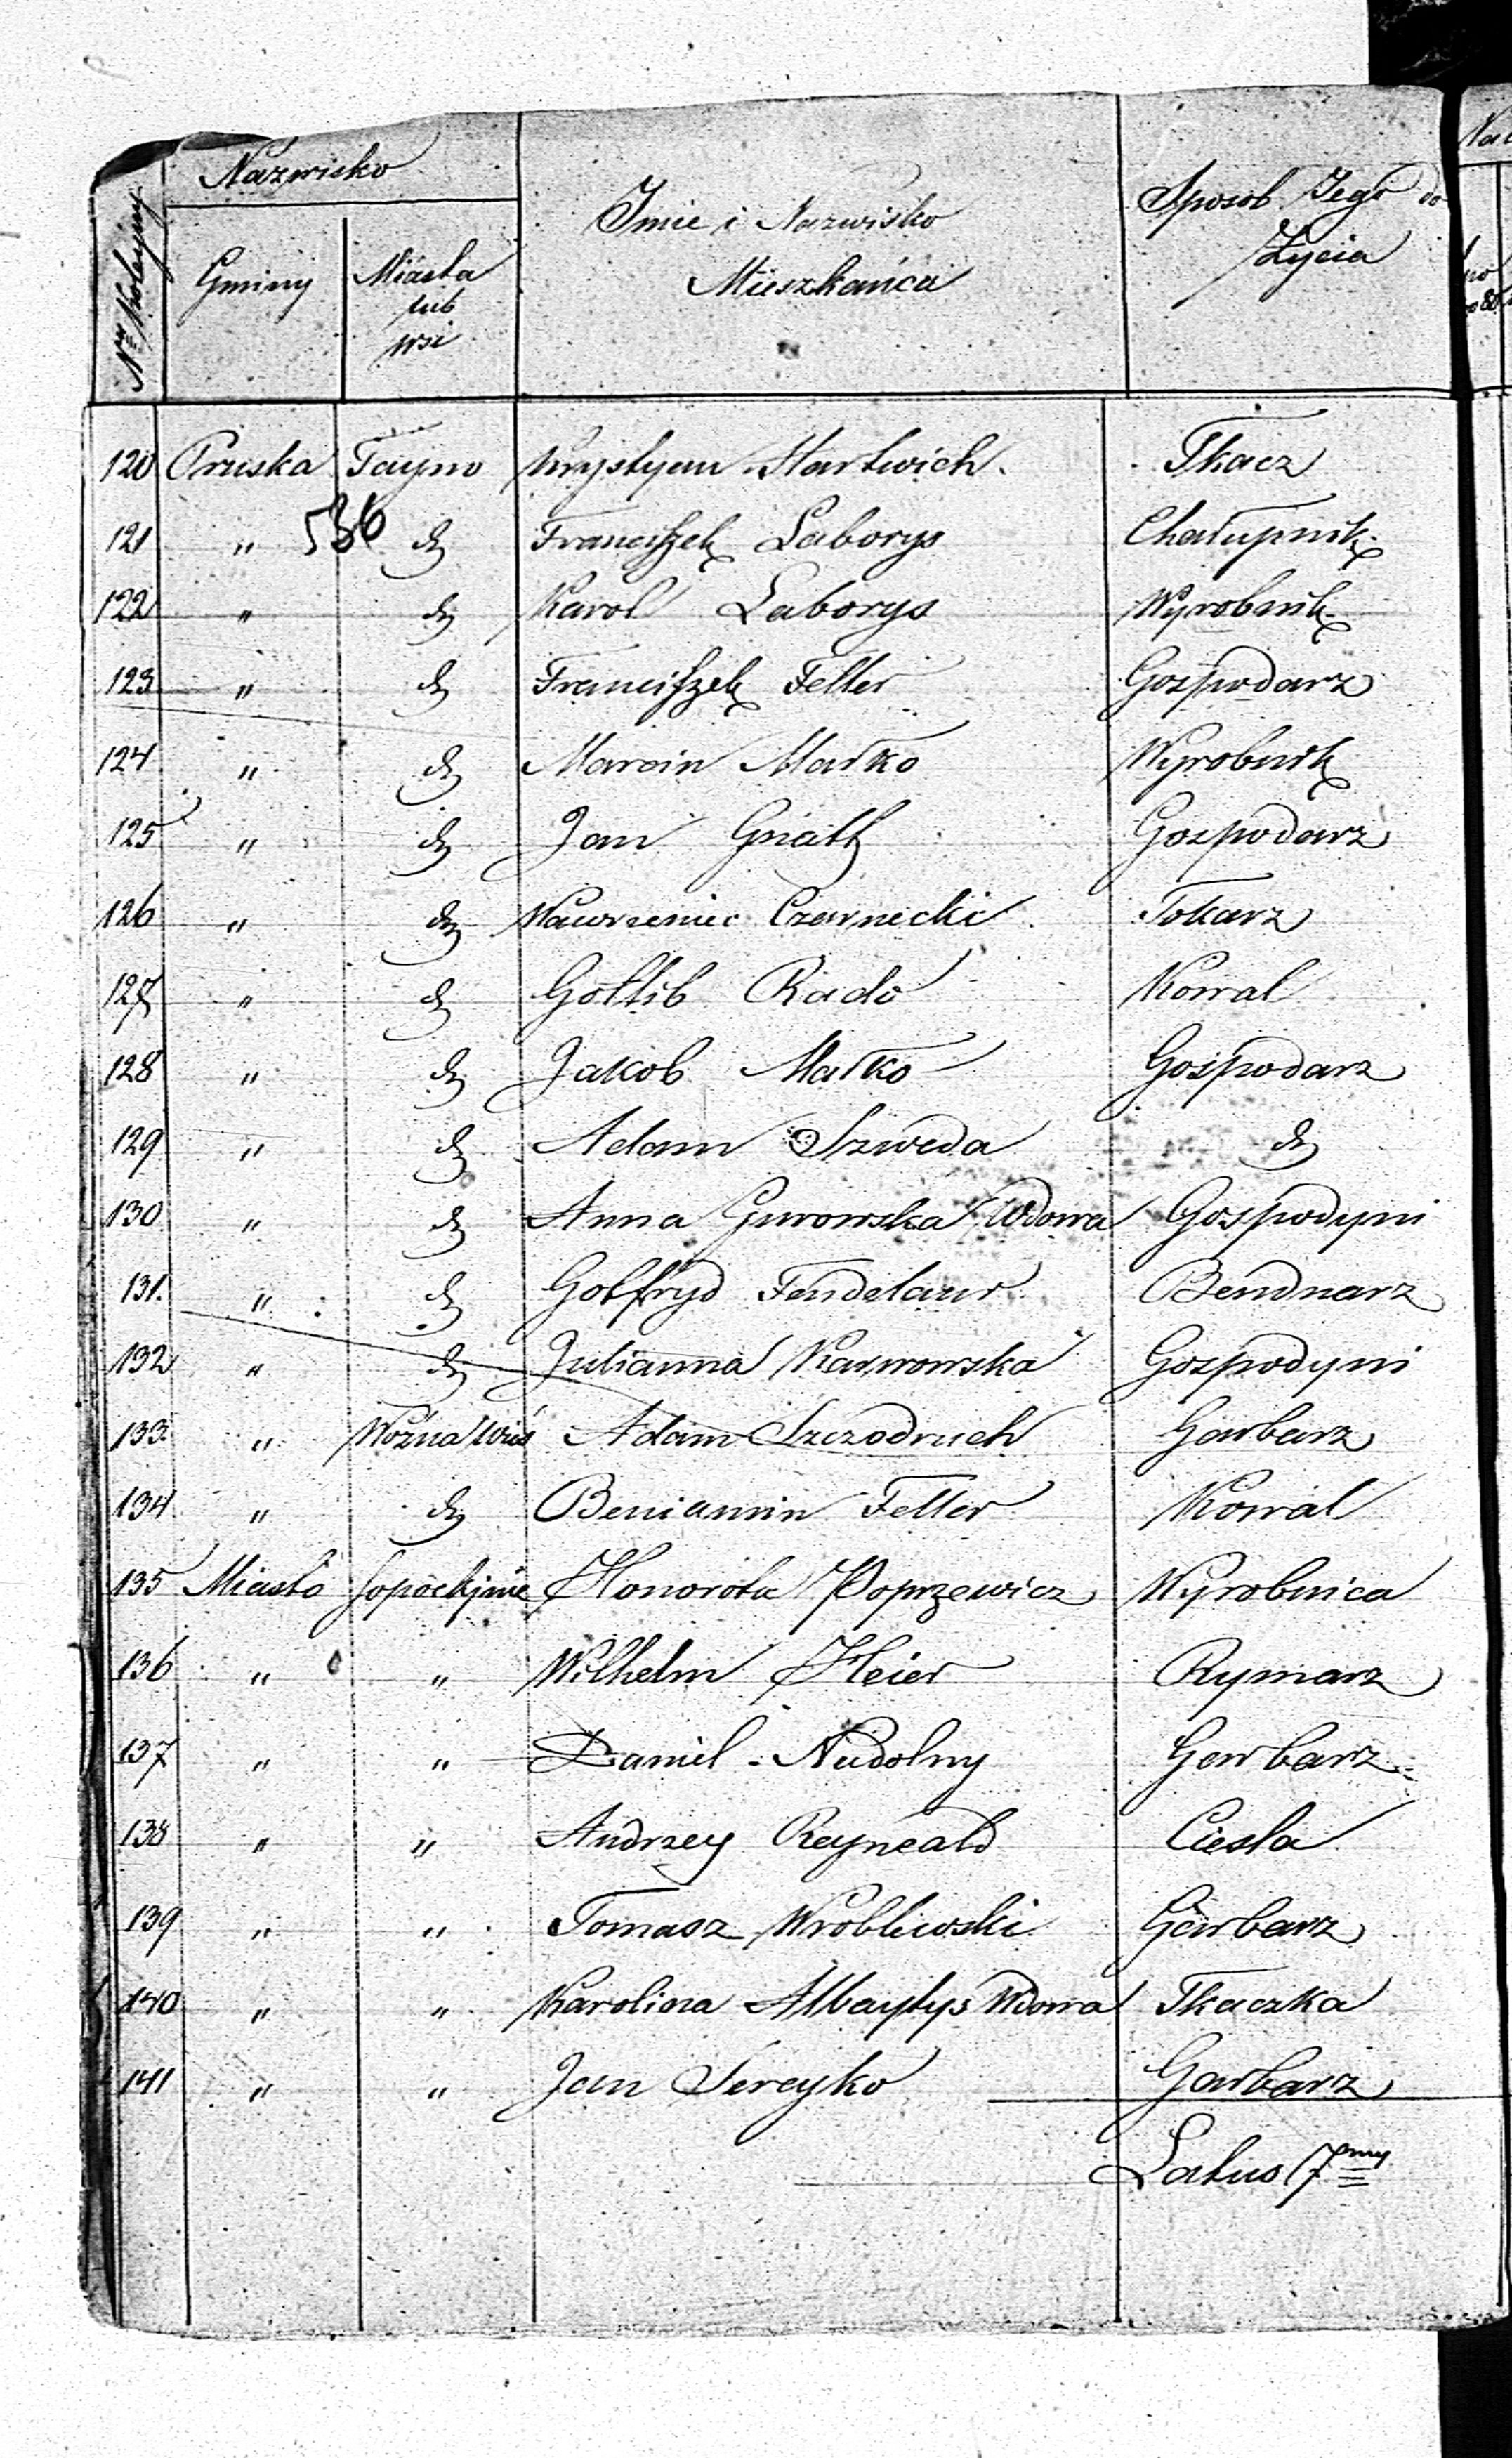 Nro Kolejny
Nazwisko
Gminy
Miasta lub wsi
Imie i Nazwisko Mieszkańca
Sposob Jego do Życia
120 Pruska Tayno Krystyan Hartwich. Tkacz
536
121 " dº Franciszek Laborys Chałupnik
122 " dº Karol Laborys Wyrobnik
123 " dº Franciszek Feller Gospodarz
124 " dº Marcin Małko Wyrobnik
125 " dº Jan Gnath Gospodarz
126 " dº Wawrzeniec Czarnecki Tokarz
127 " dº Gottlib Rado Kowal
128 " dº Jakob Małko Gospodarz
129 " dº Adam Szweda dº
130 " dº Anna Gurowska Wdowa Gospodyni
131. " dº Gotfryd Fendelaur Bendnarz
132 " dº Julianna Karwowska Gospodyni
133. " Woźna wieś Adam Szczodruch Garbarz
134. " dº Beniamin Feller Kowal
135 Miasto Sopoćkinie Honorota Poprzewicz Wyrobnica
136 " " Wilhelm Heier Rymarz
137 " " Daniel Nudolny Garbarz
138 " " Andrzey Reyneald Ciesla
139 " " Tomasz Wroblewski Garbarz
140 " " Karolina Albaytys Wdowa Tkaczka
141 " " Jan Sereyko Garbarz
Latus 7my